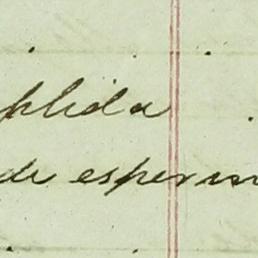 plida
de esperim